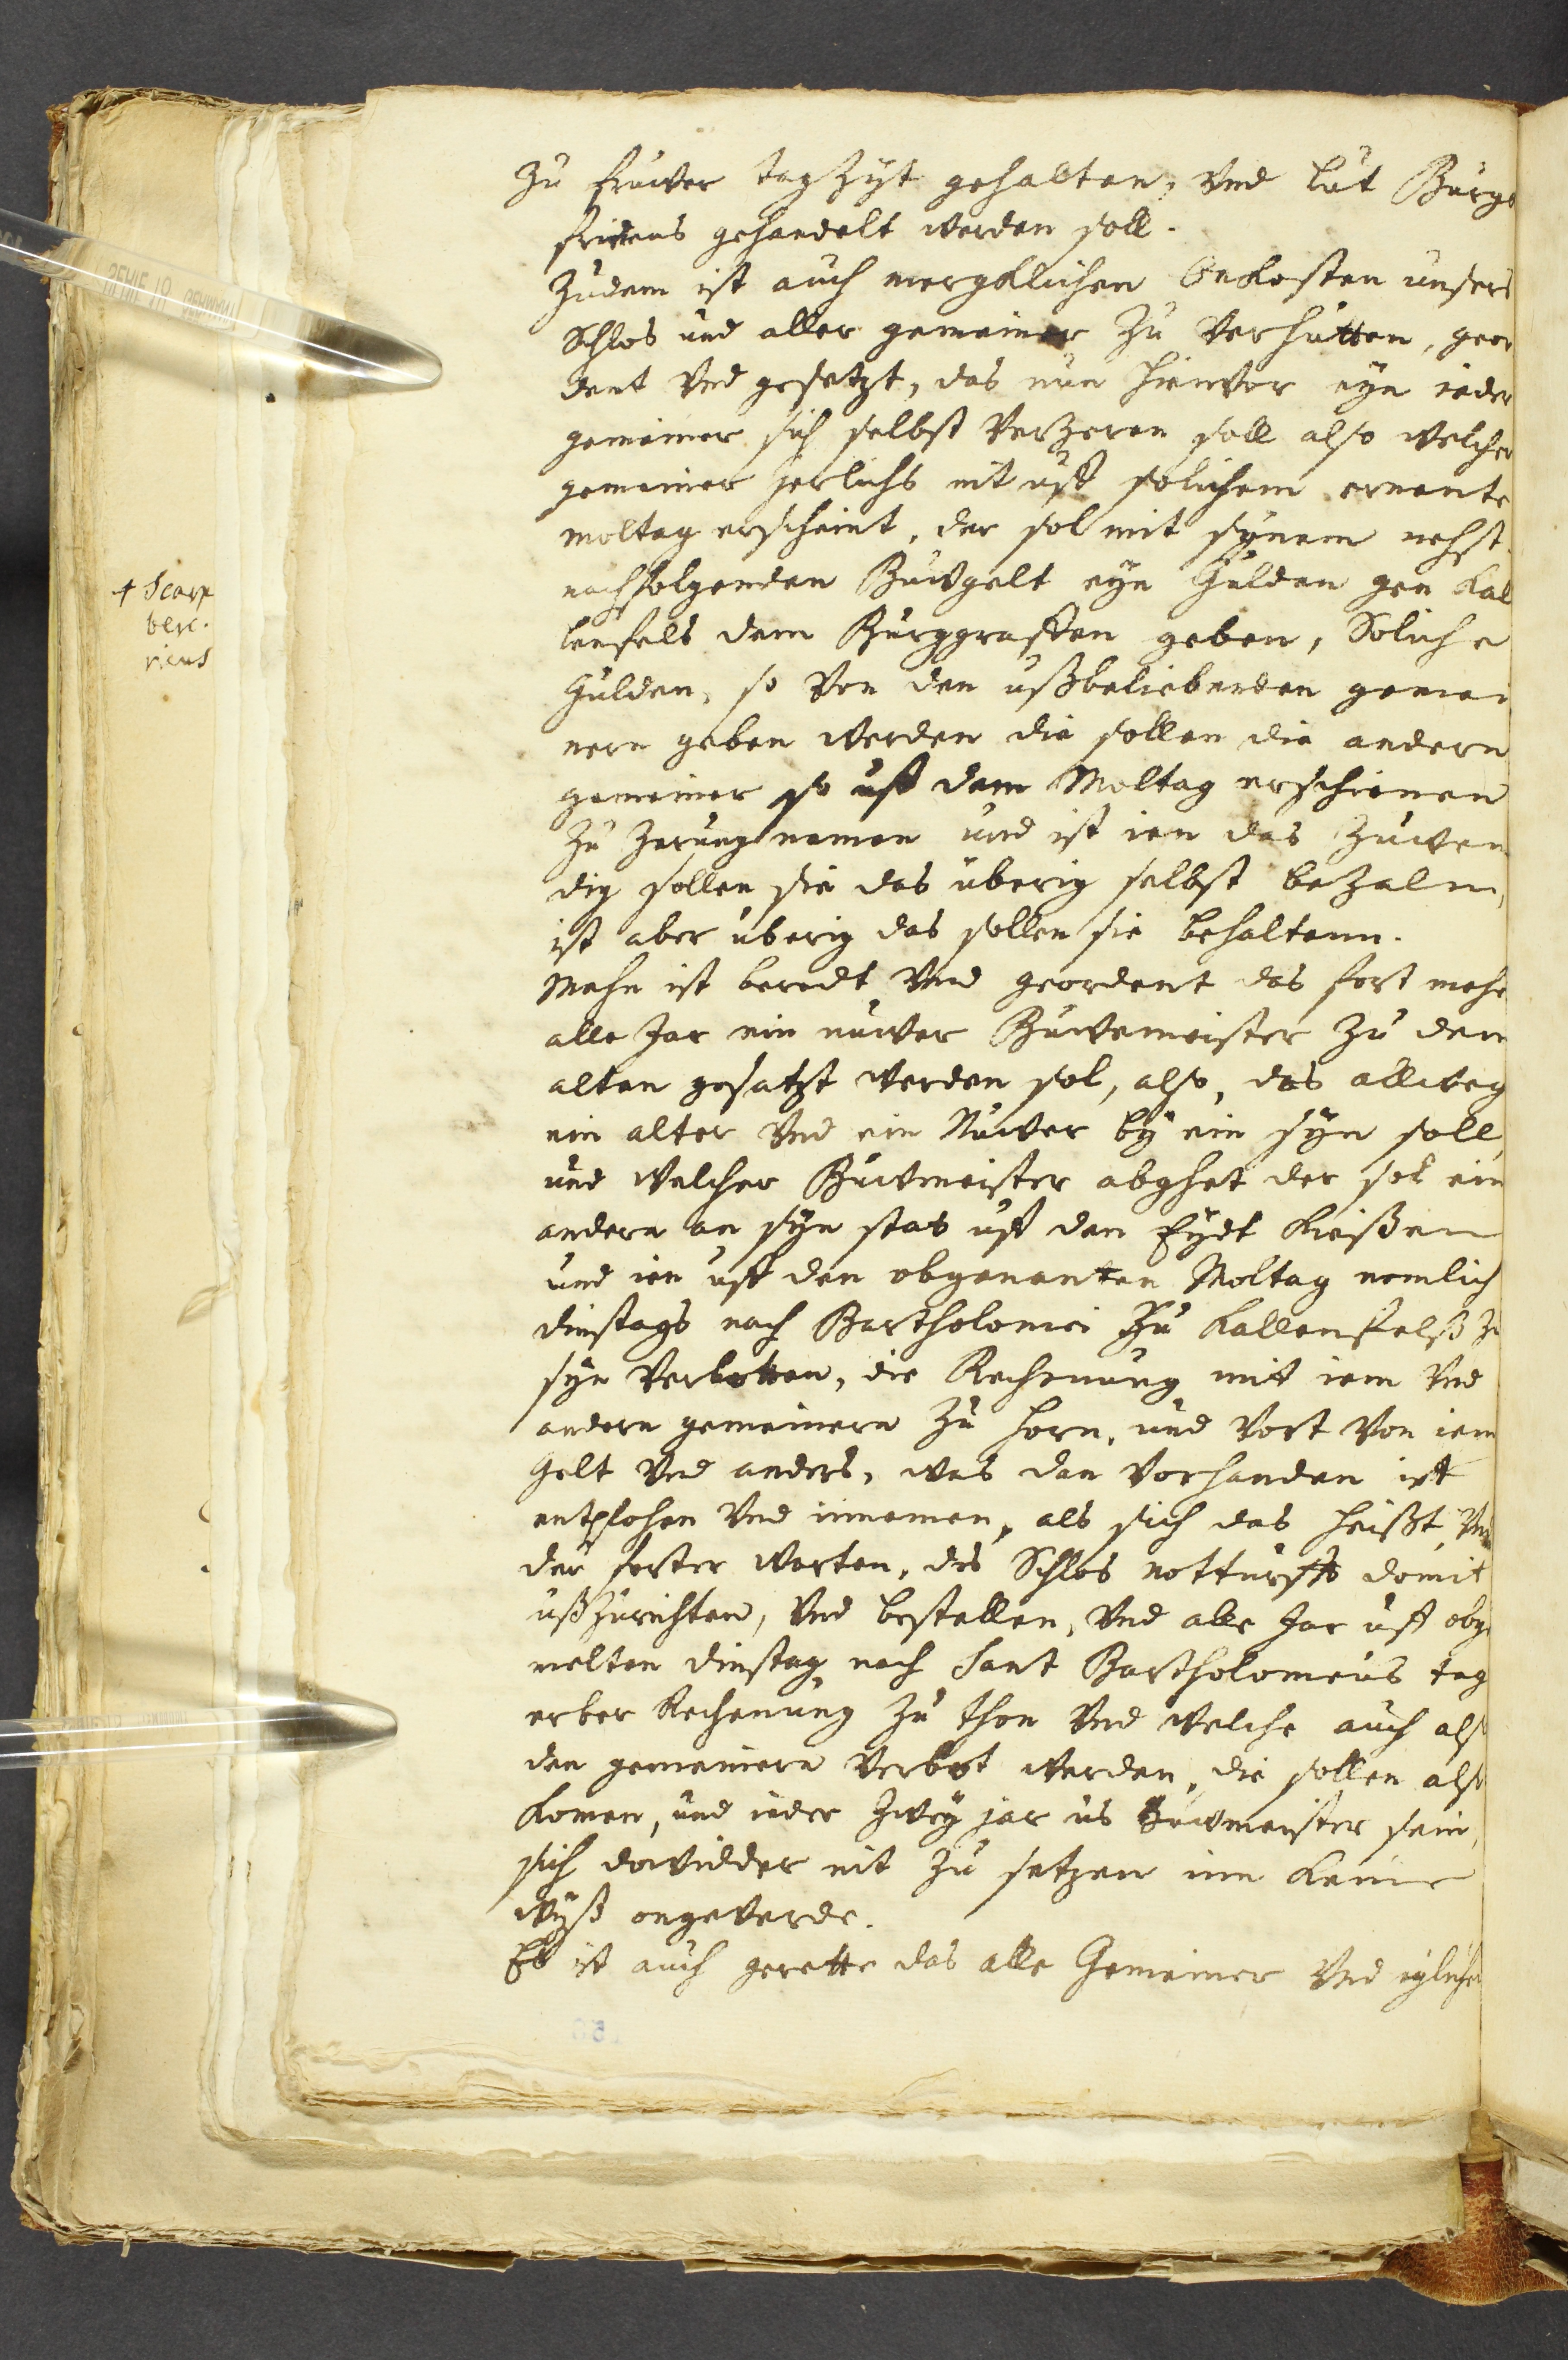 zu fruwer tag Zÿt gehalten, Vnd lut Burg
fridens gehandelt werden soll.
Zudem ist auch mergklichen Onkosten unsers
Schlos und aller gemeiner Zu Verhutten, geor
dent Vnd gesetzt, das nun hienvor eyn ieder
gemeiner sich selbst Verzeren soll also welcher
gemeiner Jerlichs nit uff solichem ernante
moltag erscheint, der sol mit synem nehst
nachfolgenden Buwgelt eyn Gulden gen Kal
lenfels dem Burggraffen geben, Soliche
Gulden, so Von den ußbeliebenden gemei
nern geben werden die sollen die andern
gemeiner so uff dem Moltag erschienen
Zu Zerung nemen und ist ien das Zuwen
dig sollen sie das überig selbst bezaln,
ist aber uberig das sollen sie behaltenn.
Mehe ist beredt Vnd geordent das fort mehe
alle Jar ein nuwer Buwemeister Zu dem
alten gesatzt werden sol, also, das allweg
ein alter Vnd ein Nuwer by ein syn soll
und welcher Buwmeister abghet der sol ein
andern an syn stat uff den Eydt kießen
und ien uff den obgenanten Moltag nemlich
dinstags nach Bartholomei Zu Kallenfelß Zu
syn Verbotten, die Rechenung mit iem Vnd
andern gemeinern Zu horn, und Vort Von iem
Gelt Vnd anders, was dan Vorhanden ist
entpfohen Vnd innemen, als sich das heißt, Vnd
der forter warten, des Schlos notturfft domit
ußZurichten, Vnd bestellen, Vnd alle Jar uff obge
melten dinstag nach Sant Bartholomeus tag
erber Rechenung Zu thon Vnd welche auch also
den gemeinern Verbot werden, die sollen also
komen, und ieder Zwey jar us Buwmeister sein,
sich dowidder nit Zu setzen inn keine
wyß ongeverde.
Es ist auch gerette das alle Gemeiner Vnd igliche